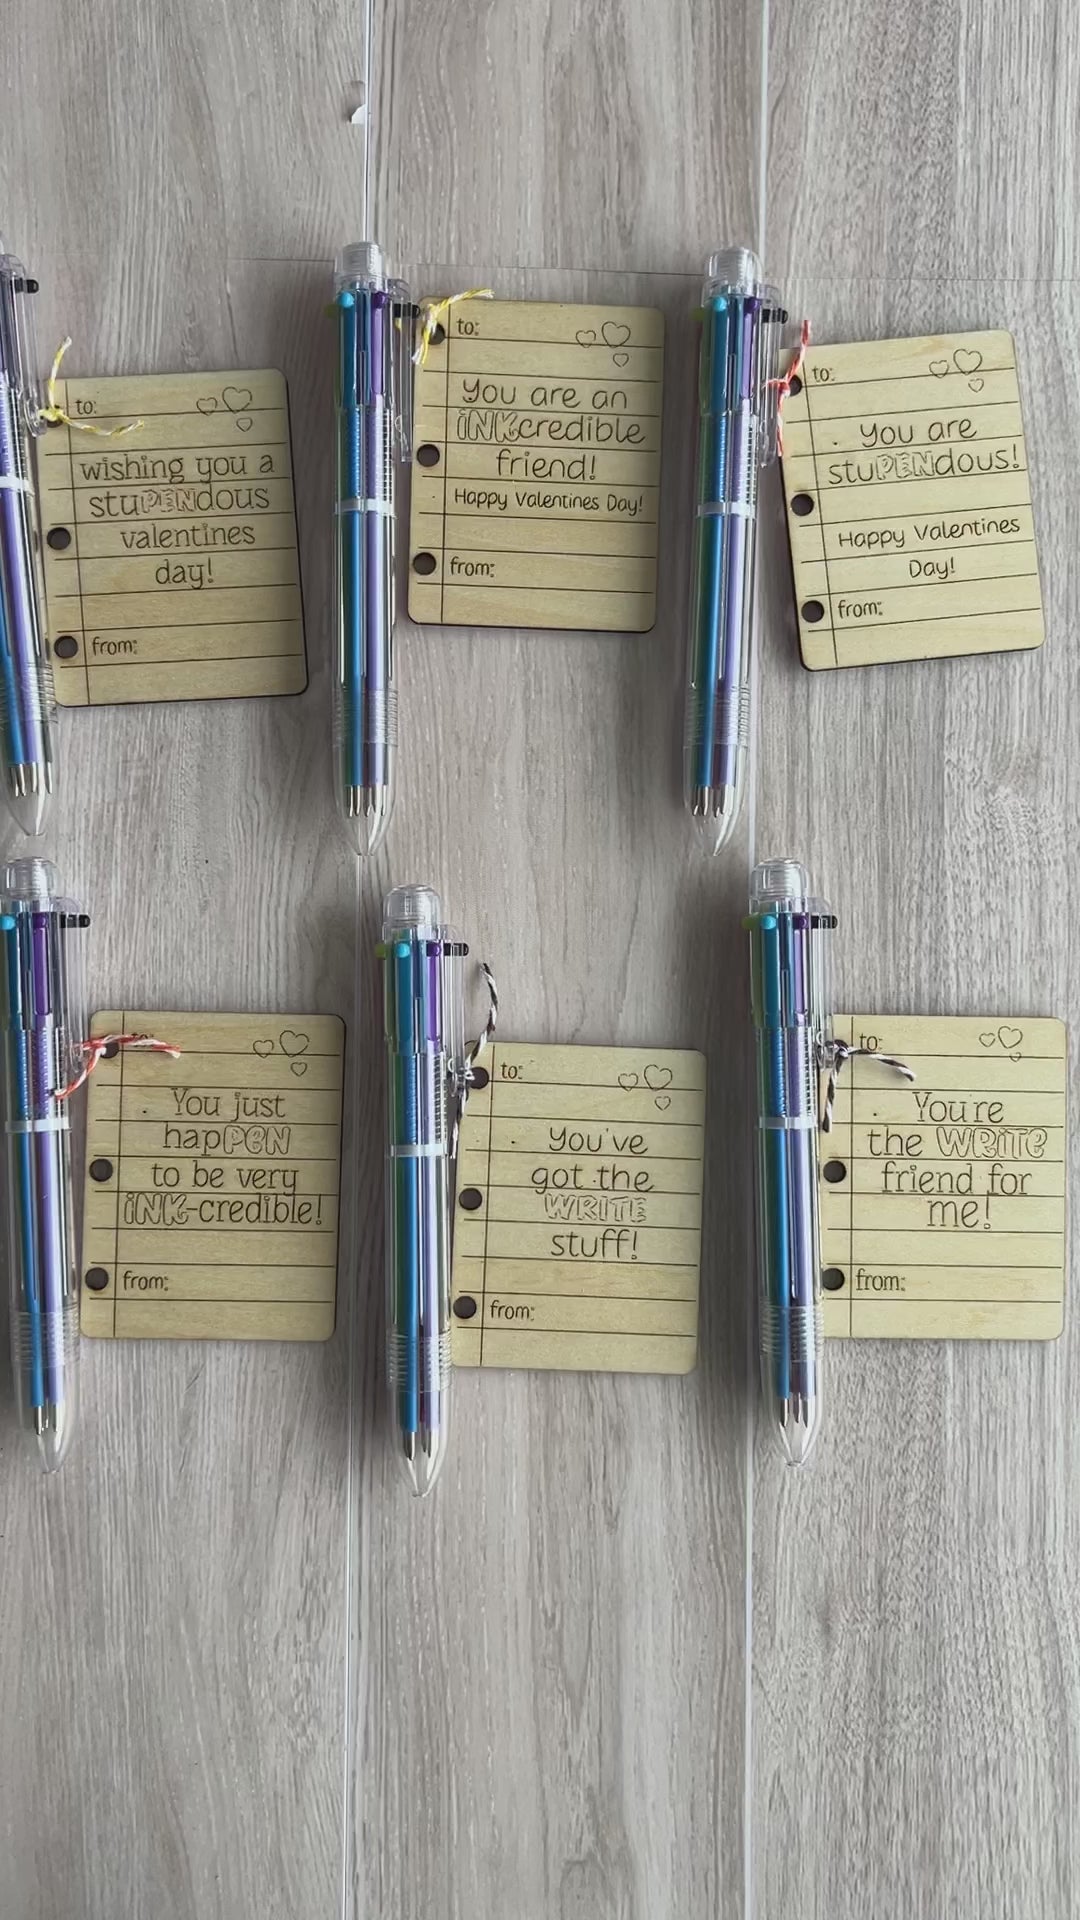 to:
wishing you a
stuPENdous
valentines
day!
from:
to:
You are an
INKcredible
friend!
Happy Valentines Day!
from:
to:
You are
stuPENdous!
Happy Valentines
Day!
from:
to:
You just
hapPEN
to be very
INK-credible!
from:
to:
You've
got the
WRITE
stuff!
from:
to:
You're
the WRITE
friend for
me!
from: